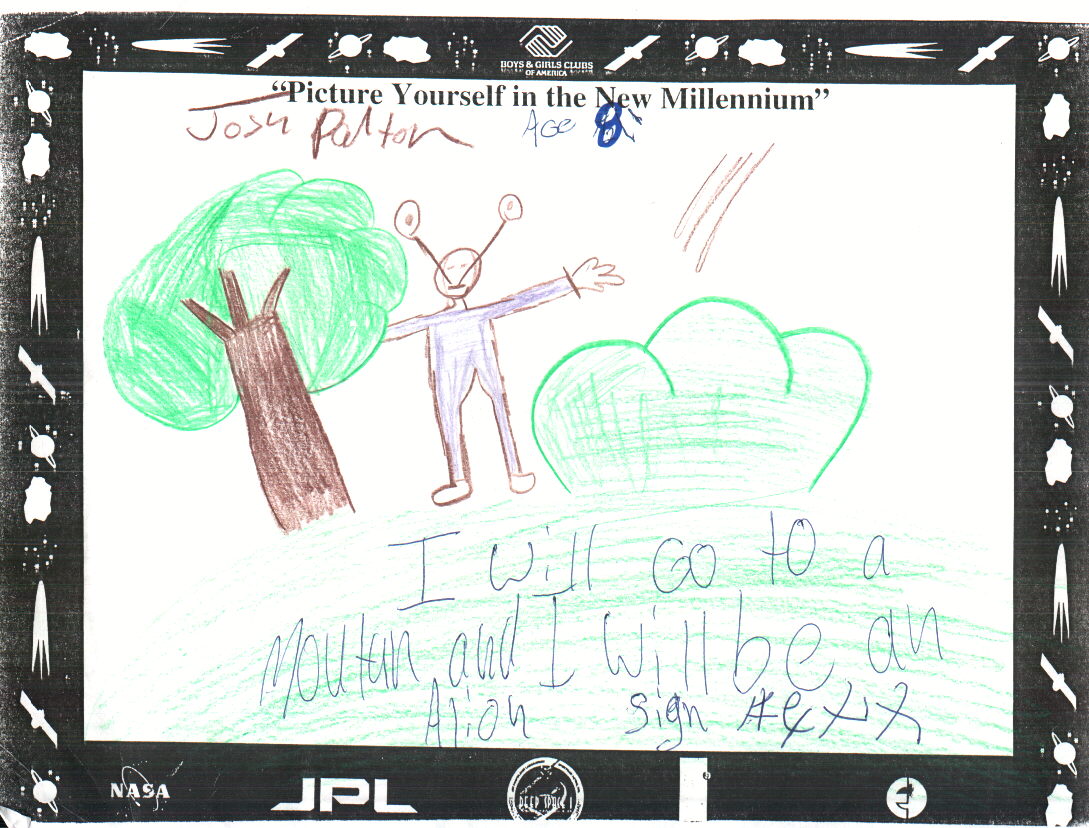 BOYS & GIRLS CLUBS
OF AMERICA
“Picture Yourself in the New Millennium”
Josh Palton Age 8
I will Go to a
Moutun and I will be an
Alion Sign
NASA
JPL
DEEP SPACE 1